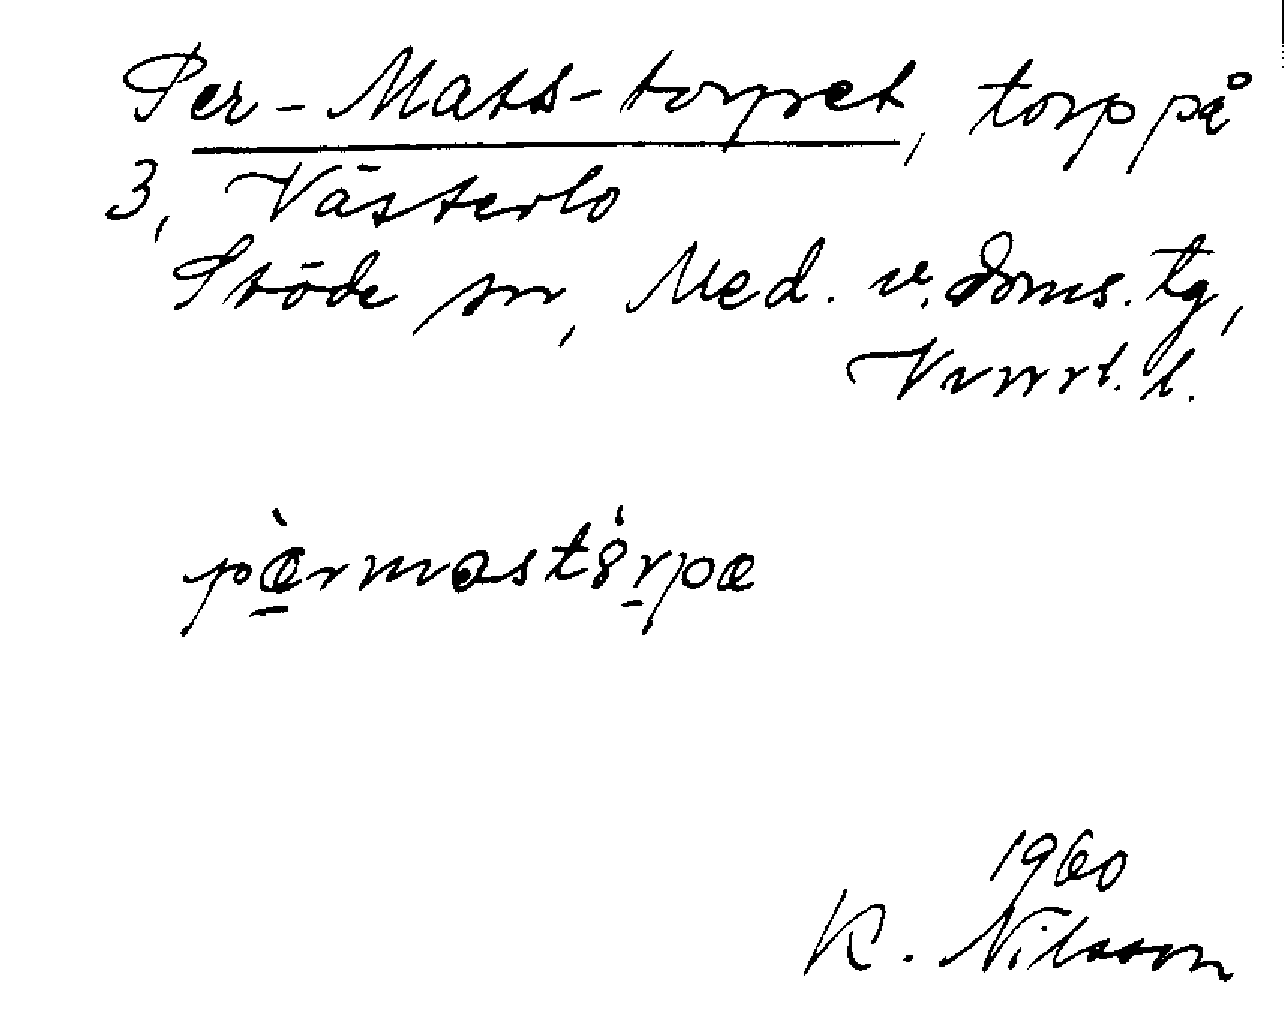 Per-Mats-torpet, torp på
3, Västerlo
Stöde sn, Med. v. doms. tg,
Vnrrl. l.
pæ̀rmastȣ́rpæ
1960
K. Nilsson